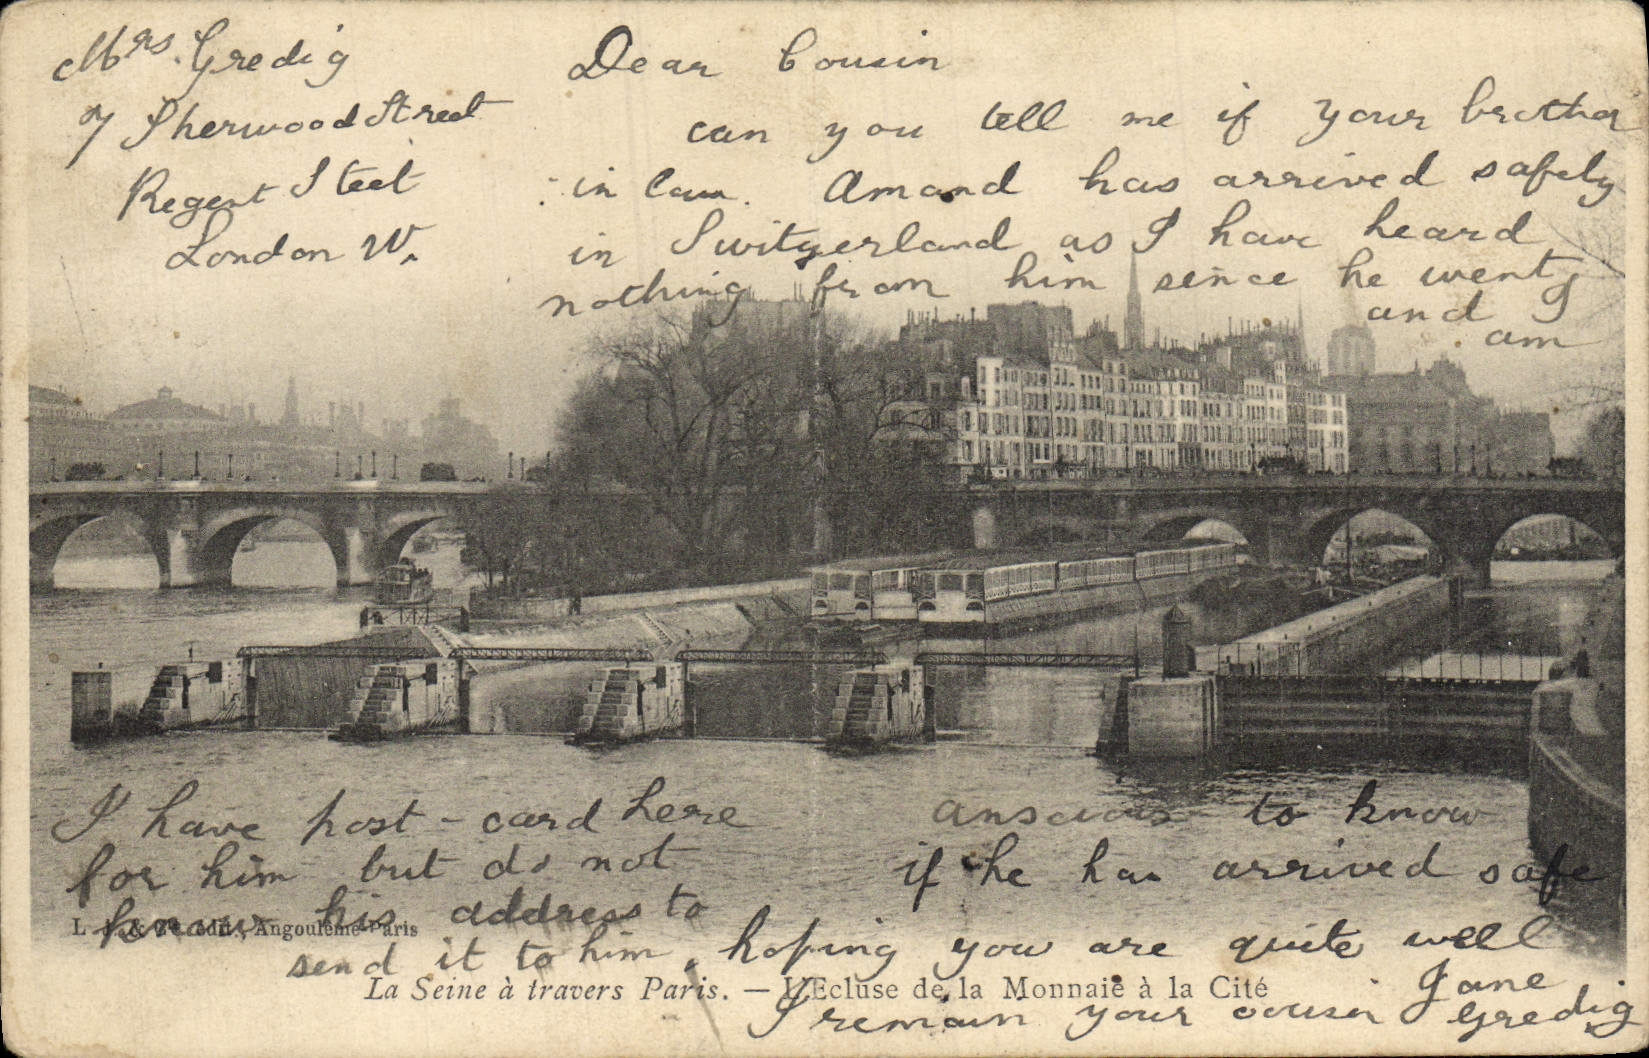 Mrs. Gredig
7 Sherwood Street
Regent Steet
London W.
Dear Cousin
can you tell me if your brother
in law. Amand has arrived safely
in Switzerland as I have heard
nothing from him since he went
and
am
anscious to know
if he has arrived safe
I have post-card here
for him but do not
know his address to
send it to him, hoping you are quite well
I remain your cousin Jane Gredig
édit., Angoulême-Paris
La Seine à travers Paris. — L'Ecluse de la Monnaie à la Cité